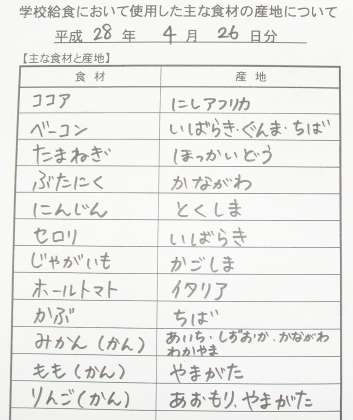 学校給食において使用した主な食材の産地について
平成 28 年 4 月 26 日分
【主な食材と産地】
食 材 産 地
ココア にしアフリカ
ベーコン いばらき・ぐんま・ちば
たまねぎ ほっかいどう
ぶたにく かながわ
にんじん とくしま
セロリ いばらき
じゃがいも かごしま
ホールトマト イタリア
かぶ ちば
みかん (かん) あいち・しずおか・かながわ
わかやま
もも (かん) やまがた
りんご(かん) あおもり、やまがた